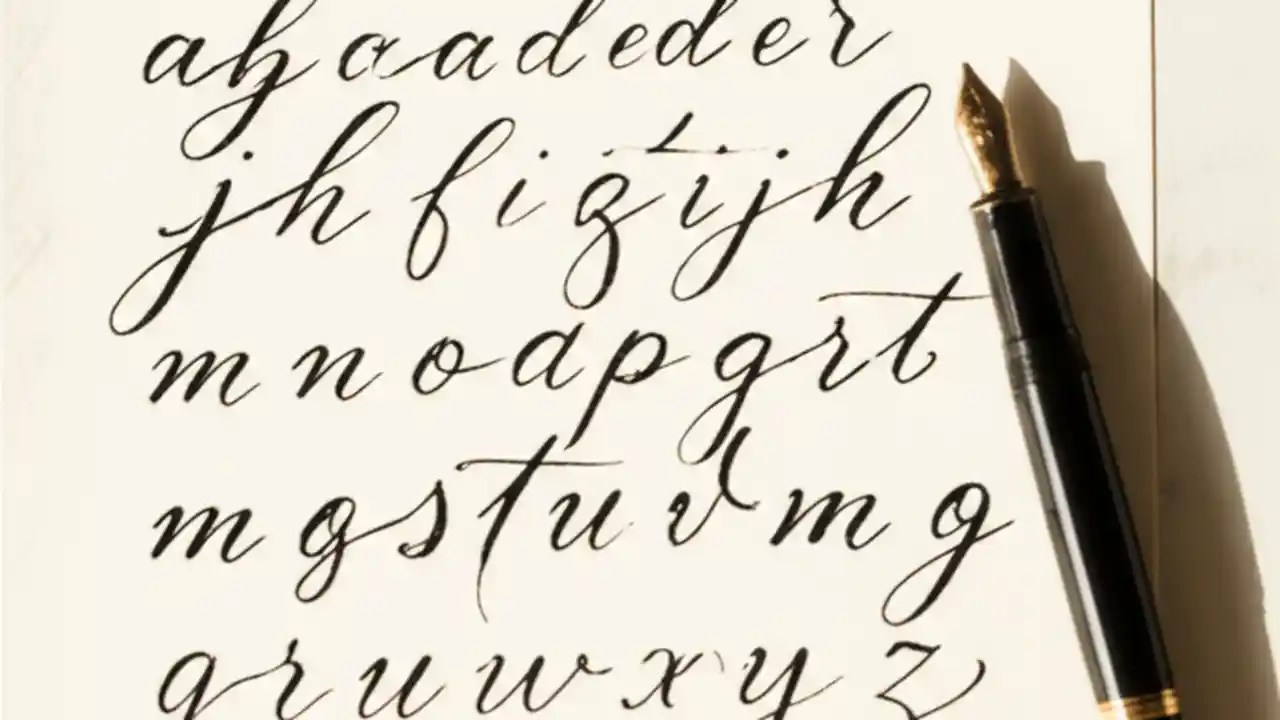 a h a a d e d e r
j h f i z i j h
m n o a p g r t
m g s t u v m g
g r u w x y z